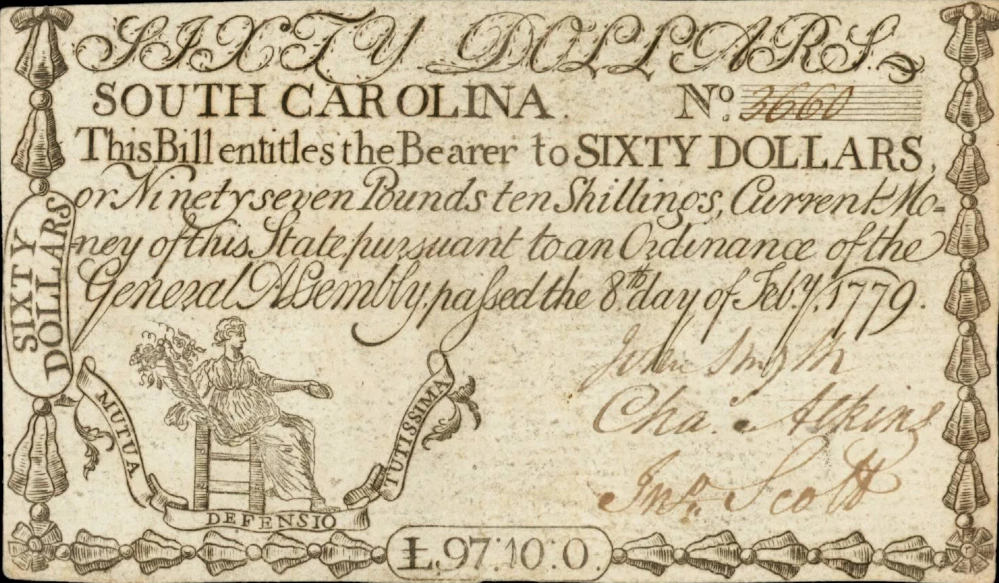 SIXTY DOLLARS.
SOUTH CAROLINA. No. 3660
This Bill entitles the Bearer to SIXTY DOLLARS,
or Ninety seven Pounds ten Shillings, Current Mo=
ney of this State, pursuant to an Ordinance of the
General Assembly, passed the 8th. day of Feb.y, 1779.
SIXTY
DOLLARS
John Smyth
Chas. Atkins
Jno. Scott
MUTUA
DEFENSIO
TUTISSIMA
£.97:10:0.